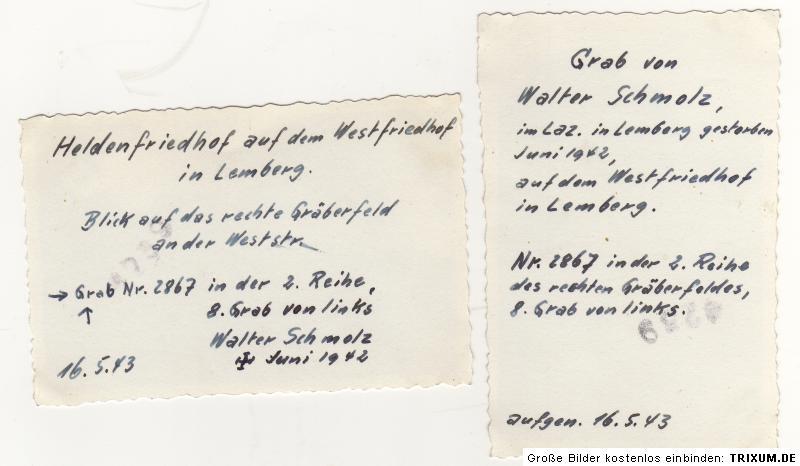 Heldenfriedhof auf dem Westfriedhof
in Lemberg.
Blick auf das rechte Gräberfeld
an der Weststr.
→ Grab Nr. 2867 in der 2. Reihe,
↑ 8. Grab von links
Walter Schmolz
Juni 1942
16. 5. 43
Grab von
Walter Schmolz,
im Laz. in Lemberg gestorben
Juni 1942,
auf dem Westfriedhof
in Lemberg.
Nr. 2867 in der 2. Reihe
des rechten Gräberfeldes,
8. Grab von links.
aufgen. 16. 5. 43
Große Bilder kostenlos einbinden: TRIXUM.DE